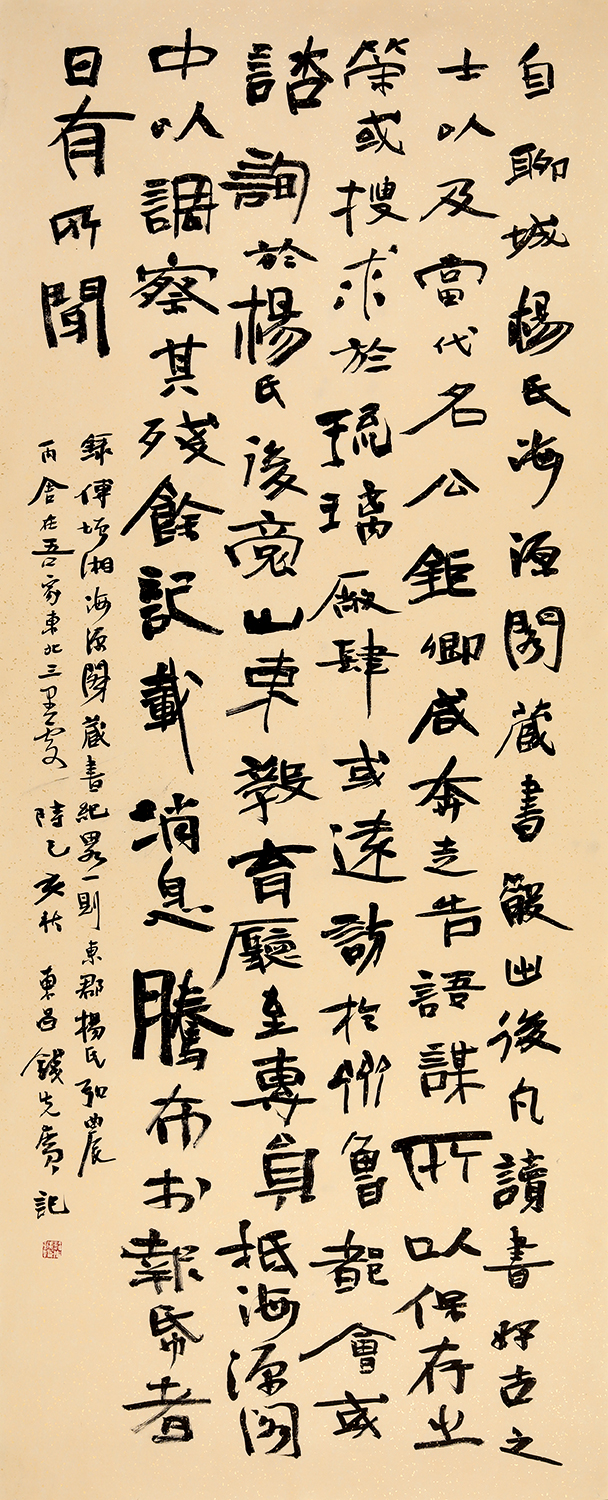 自聊城楊氏海源閣藏書散出後凡讀書好古之
士以及當代名公鉅卿咸奔走告語謀所以保存之
策或搜求於琉璃廠肆或遠訪於齊魯都會或
諮詢於楊氏後裔山東教育廳至專員抵海源閣
中以調察其殘餘記載消息騰布於報帋者
日有所聞
錄傅增湘海源閣藏書紀畧一則東郡楊氏弘農
丙舍在吾家東北三里處時乙亥秋東昌錢先廣記